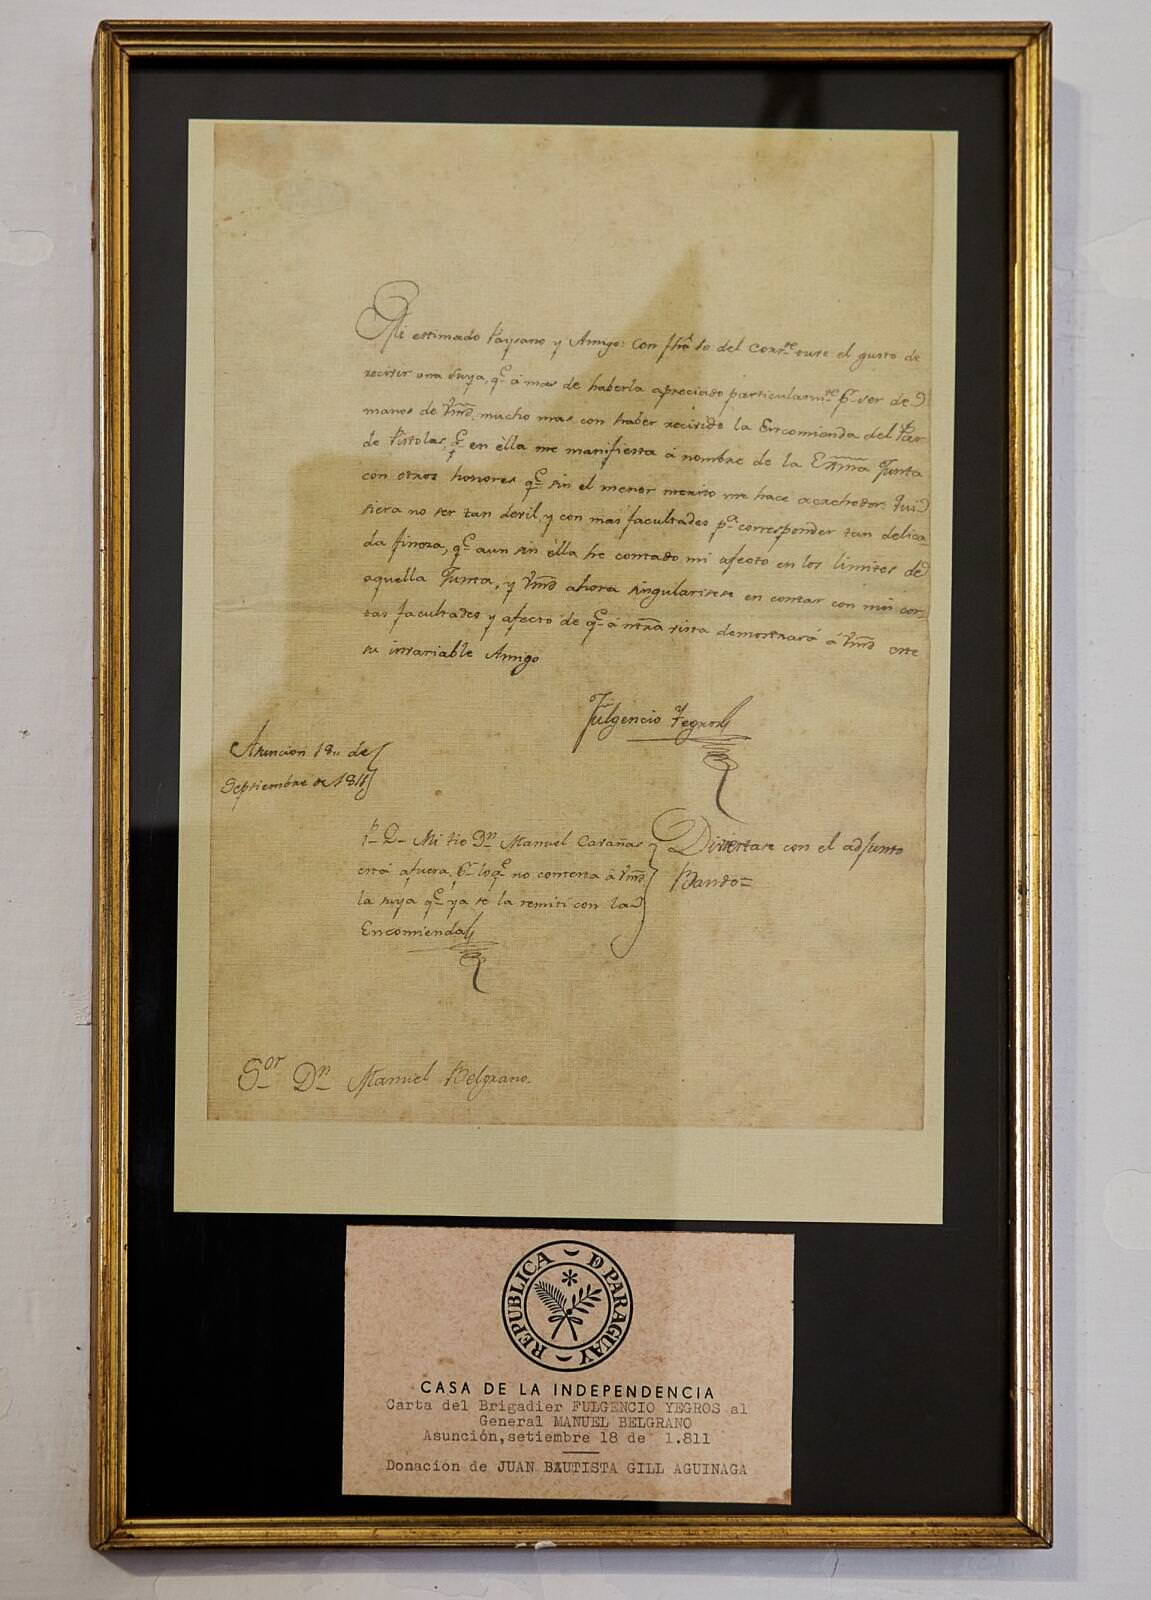 Mi estimado Paysano y Amigo: con fha 10 del corr.te tuve el gusto de
recivir una suya, q.e á mas de haberla apreciado particularm.te p.r ser de
manos de Vmd. mucho mas con haber recivido la Encomienda del Par
de Pistolas, q.e en èlla me manifiesta á nombre de la Exma Junta
con otros honores q.e sin el menor merito me hace acrehedor: Qui
siera no ser tan devil, y con mas facultades p.a corresponder tan delica
da fineza, q.e aun sin èlla he contado mi afecto en los limites de
aquella Junta, y Vmd ahora singularisese en contar con mis cor-
tas facultades y afecto de q.e á ntra vista demostrará á Vmd este
su invariable Amigo
Fulgencio Yegros
Asuncion 18,, de
Septiembre de 1811
P. D. Mi tio Dn Manuel Cavañas
está afuera, P.r lo q.e no contexta á Vmd
la suya q.e ya se la remiti con la
Encomienda
Diviertase con el adjunto
Bando=
S.or Dn Manuel Belgrano.
REPUBLICA D PARAGUAY
CASA DE LA INDEPENDENCIA
Carta del Brigadier FULGENCIO YEGROS al
General MANUEL BELGRANO
Asunción, setiembre 18 de 1.811
Donación de JUAN BAUTISTA GILL AGUINAGA